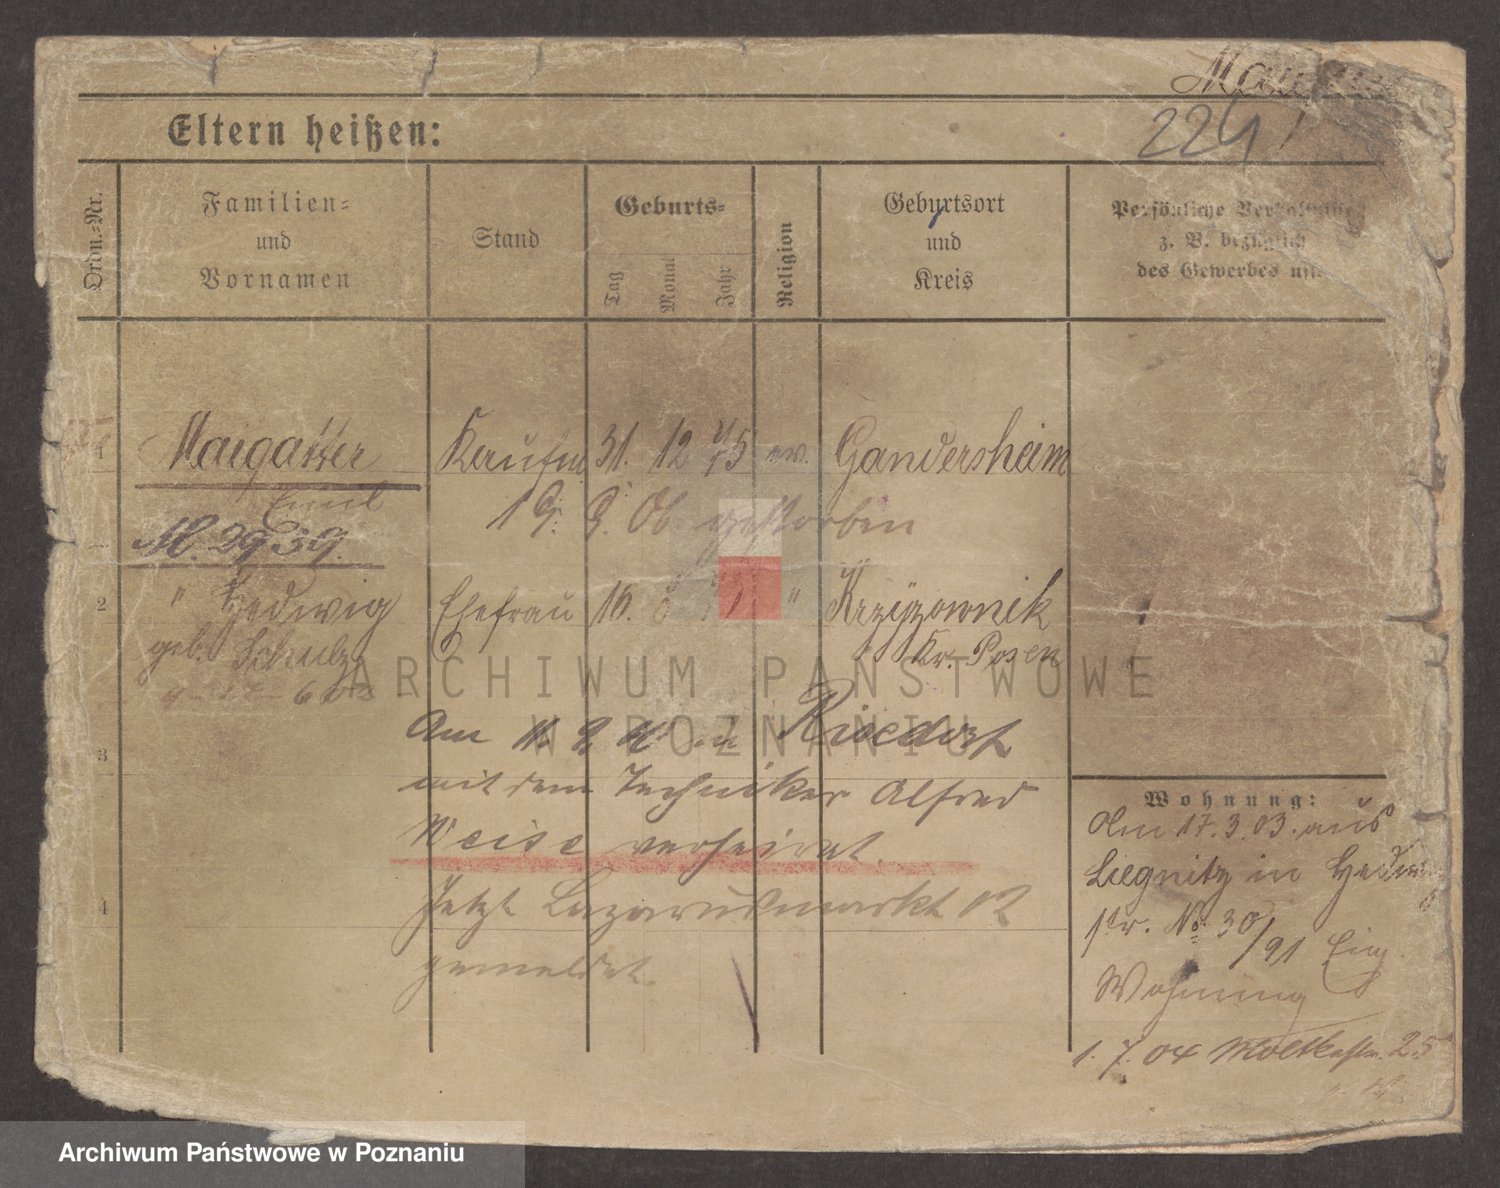 2241
Eltern heißen:
Ordn.-Nr.
Familien-
und
Vornamen
Stand
Geburts-
Tag
Monat
Jahr
Religion
Geburtsort
und
Kreis
Persönliche Verhältnisse
z. B. bezüglich
des Gewerbes usw.
1 Maigatter Kaufm 31. 12 75 ev. Gandersheim
Emil
19. 9. 06 gestorben
M. 2939.
2 " Hedwig Ehefrau 16. 8 " Krzyzownik
geb. Schulz Kr. Posen
3 Am 11. 9. in
mit dem Techniker Alfred
Weise verheirat.
4 Jetzt Lazarusmarkt 12
gemeldet.
Wohnung:
Am 17.3.03. aus
Liegnitz in Hedwig
str. No 30/91 Eig.
Wohnung
1. 7. 04 Moltkestr. 25
ARCHIWUM PAŃSTWOWE
W POZNANIU
Archiwum Państwowe w Poznaniu